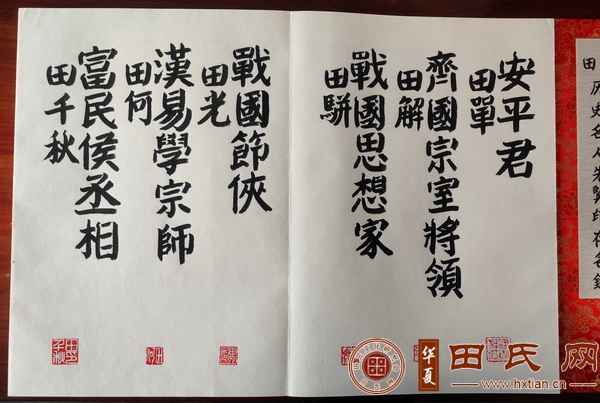 安平君
田單
齊國宗室將領
田解
戰國思想家
田駢
戰國節俠
田光
漢易學宗師
田何
富民侯丞相
田千秋
田
历史名人
华夏
田氏网
www.hxtian.cn